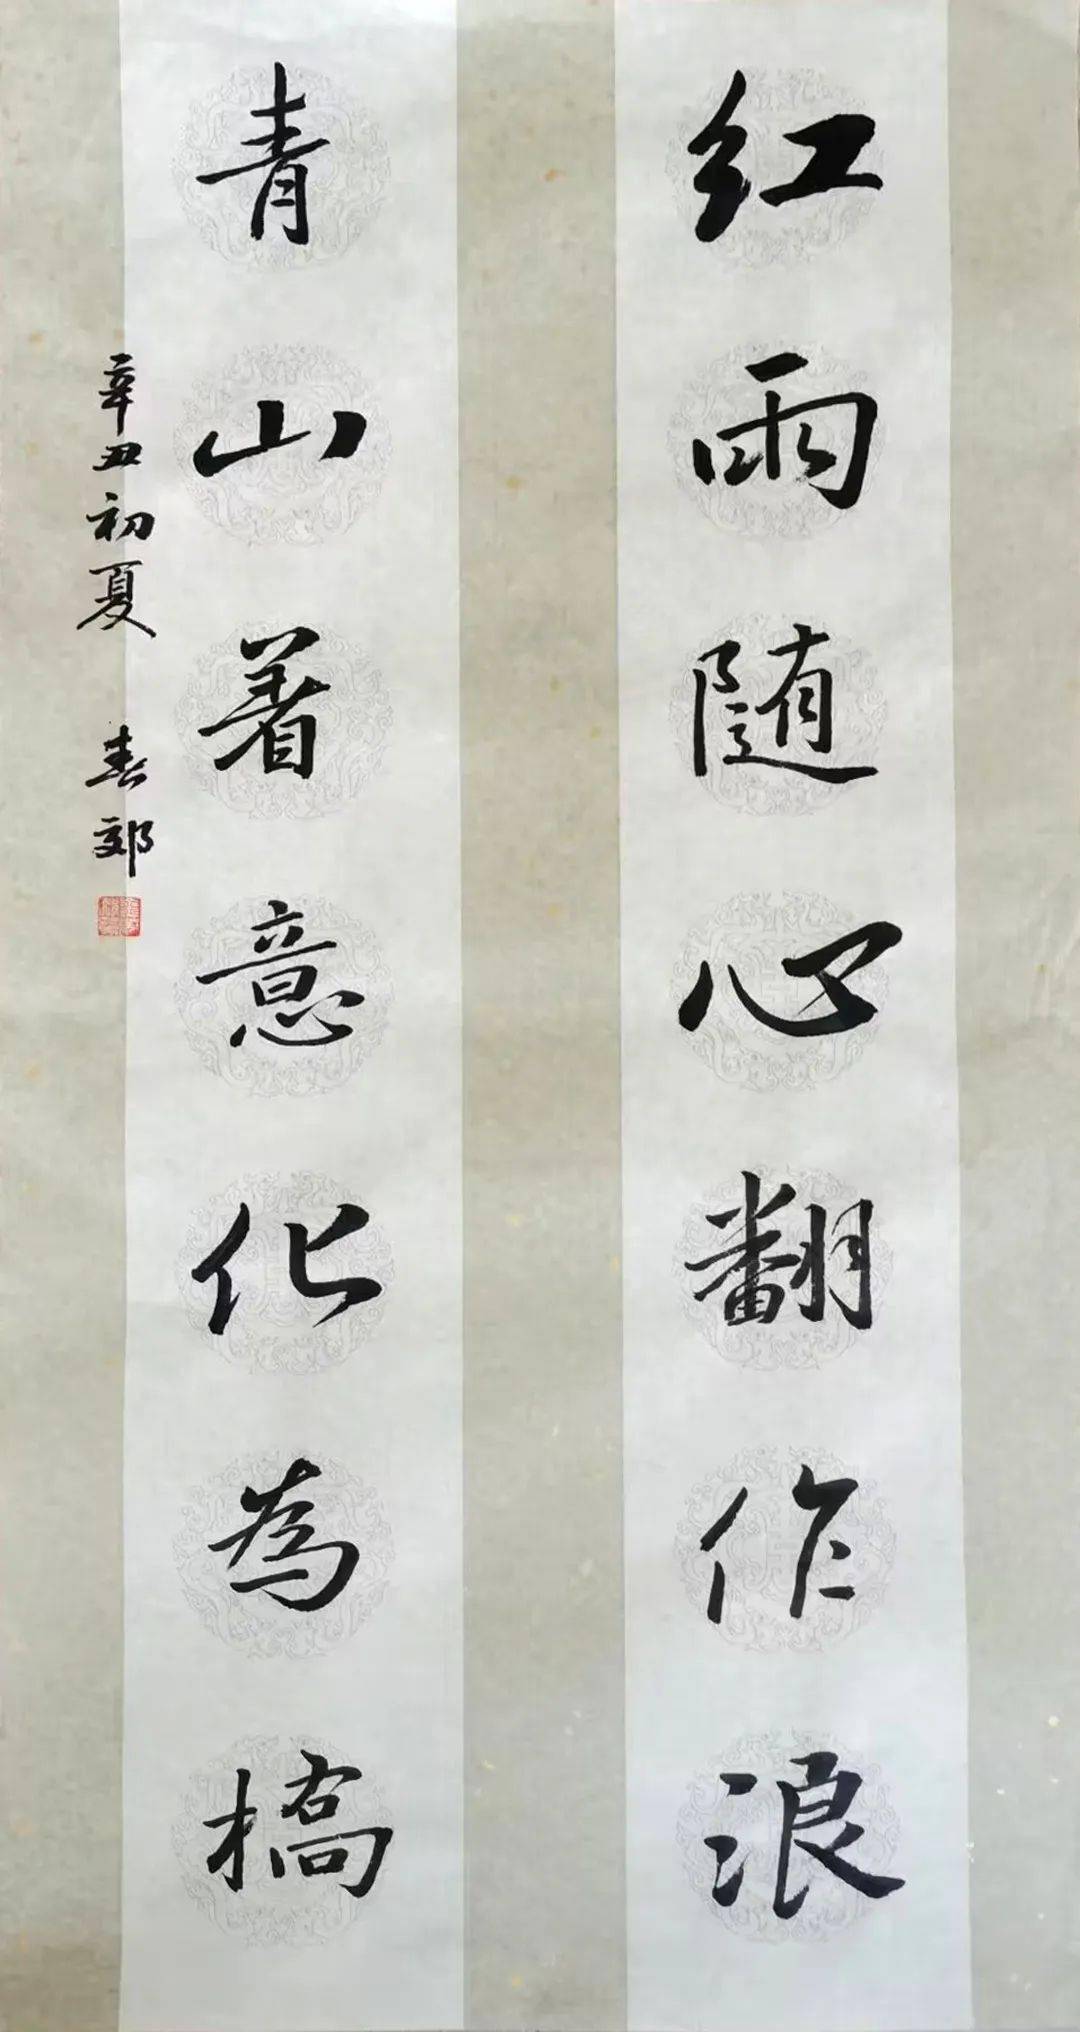 红雨随心翻作浪
青山着意化為橋
辛丑初夏 春郊